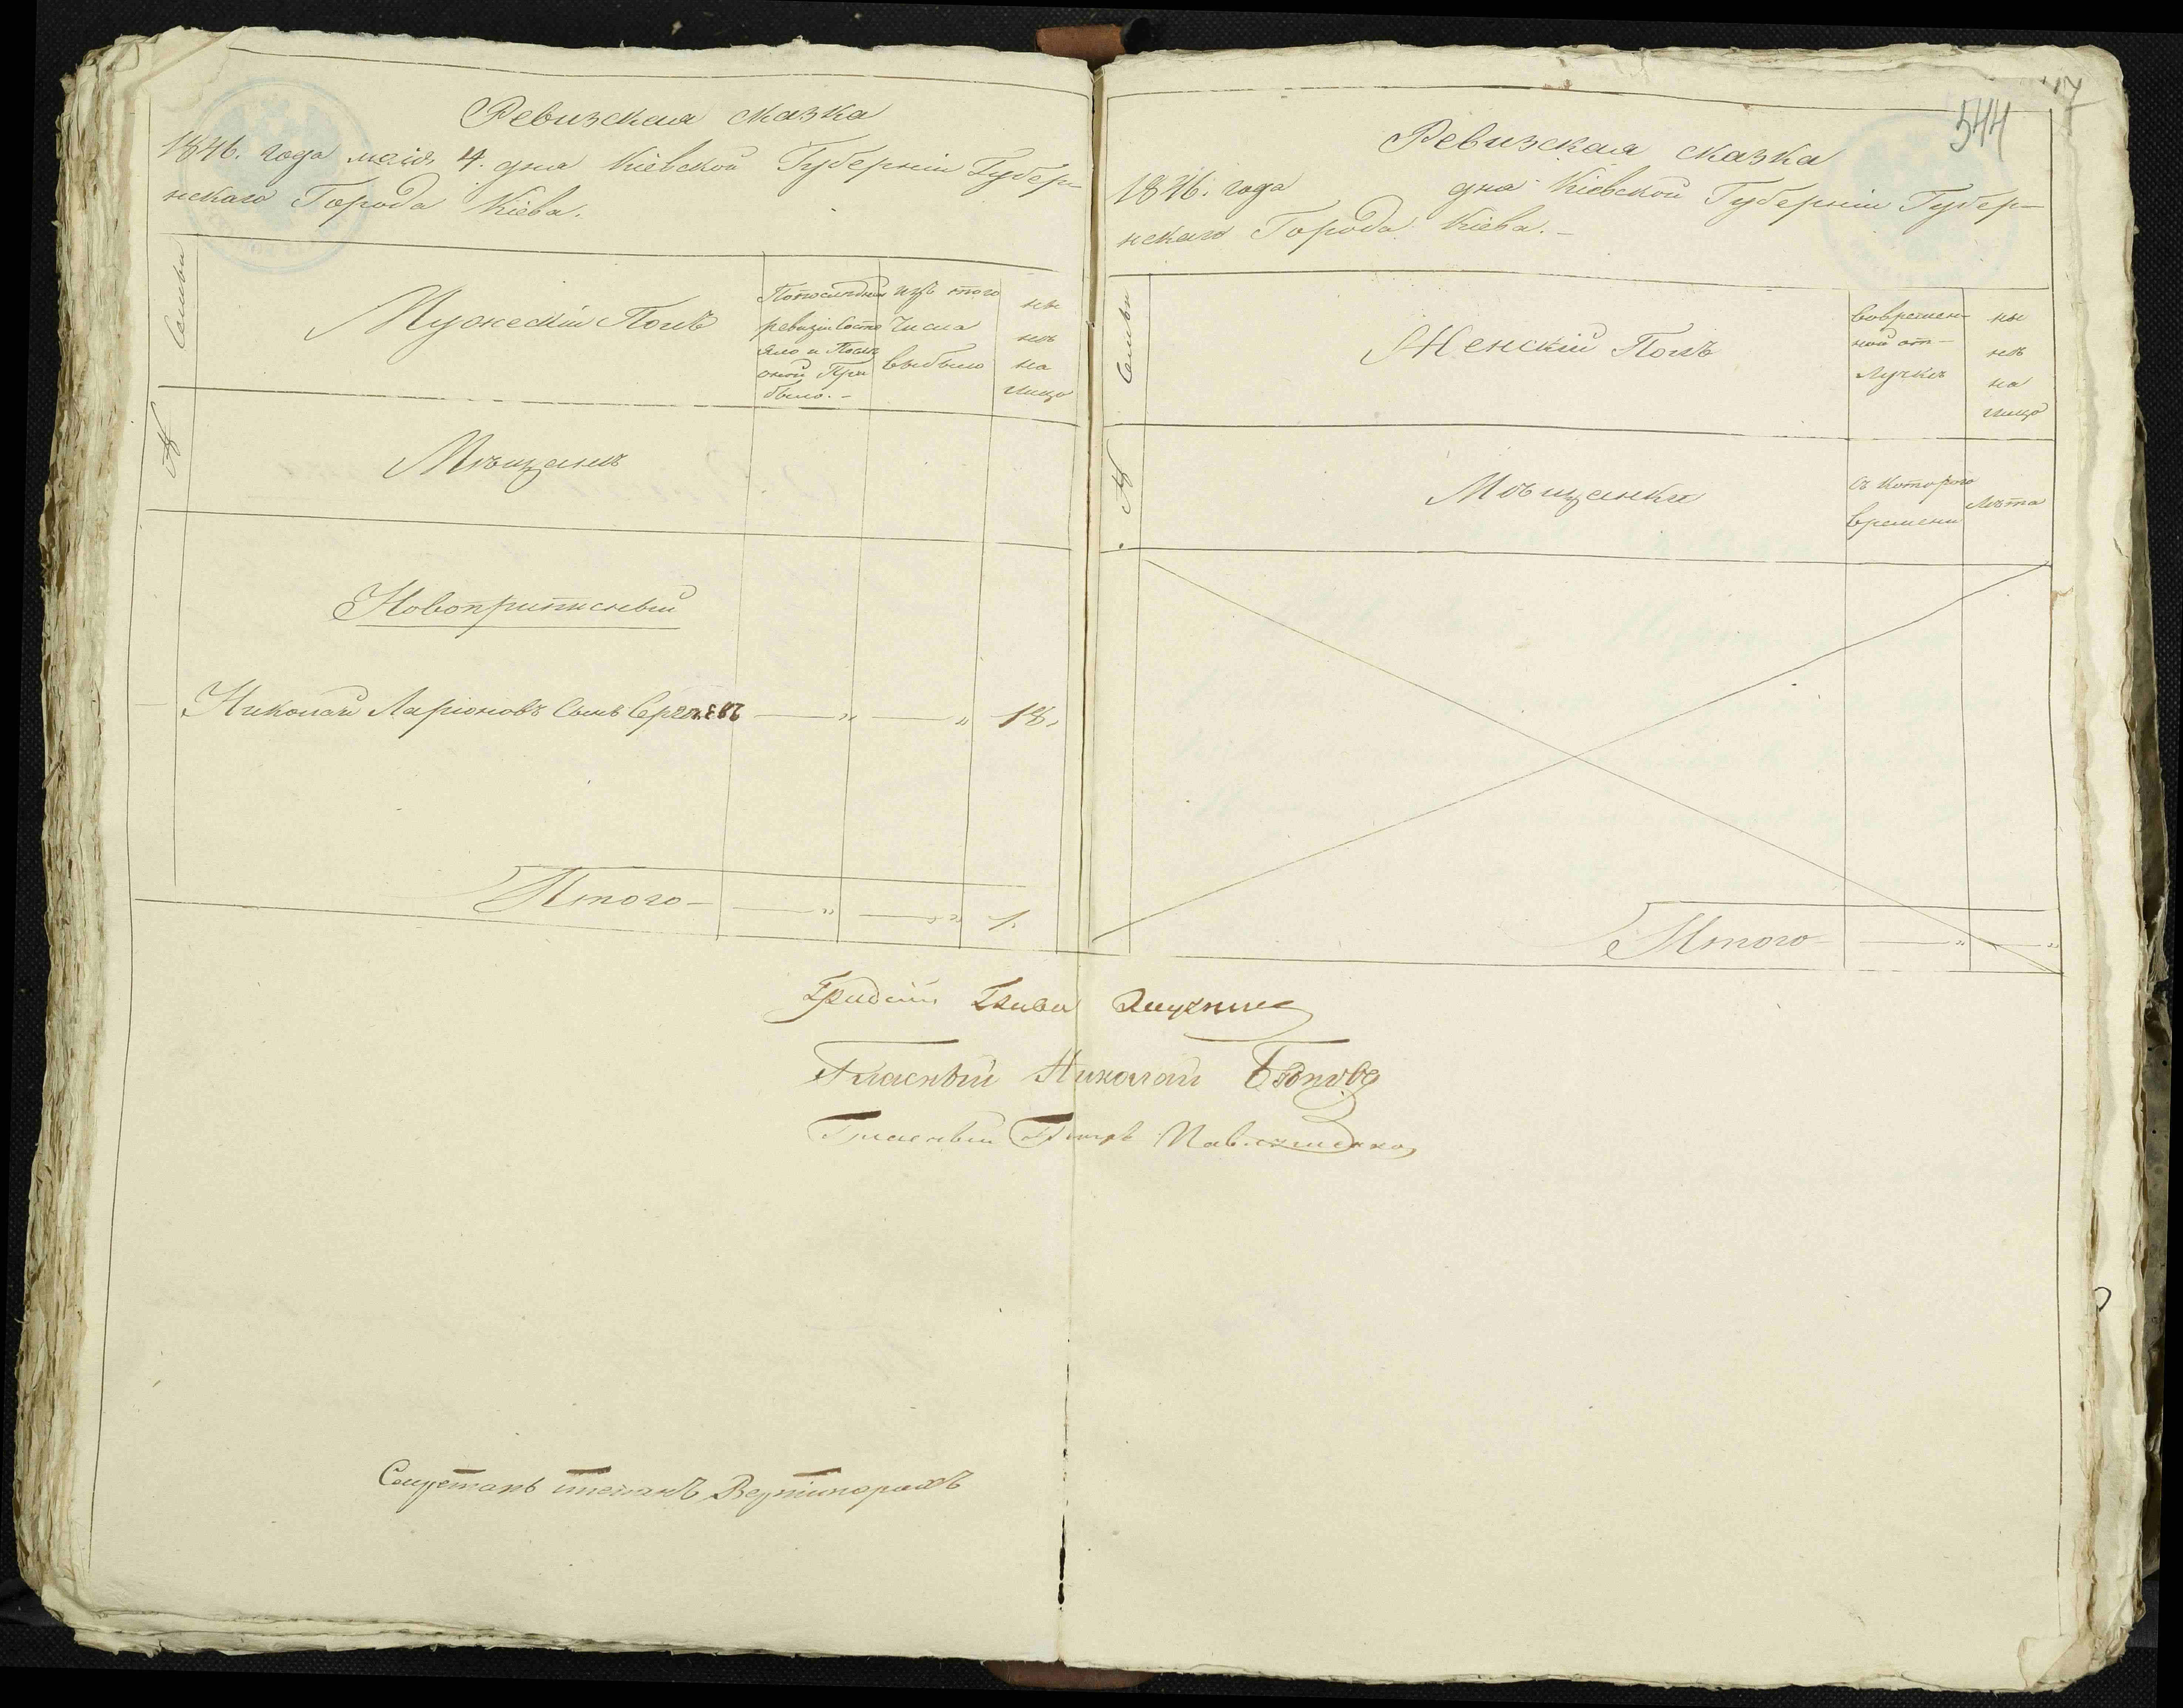 Ревизская сказка
1846. года мая 4. дня Кіевской Губерніи Губер-
нскаго Города Кіева.
Семьи
Мужескій Полъ
По последней
ревизіи состо
яло и после
оной При
было.-
изъ того
числа
выбыло
ны
нѣ
на
лицо
№
Мѣщанъ
Новоприписный
Николай Ларіоновъ Сынъ Сергѣевъ — „ — „ 18.
Итого — — „ — „ 1.
544
Ревизская сказка
1846. года дня Кіевской Губерніи Губер-
нскаго Города Кіева.-
Семьи
Женскій Полъ
Вовремен-
ной от-
лучкѣ
ны
нѣ
на
лицо
№
Мѣщанки
съ котораго
времени
Лѣта
Итого — „ — „
Градскій Глава
Гласный Николай
Гласный Петръ